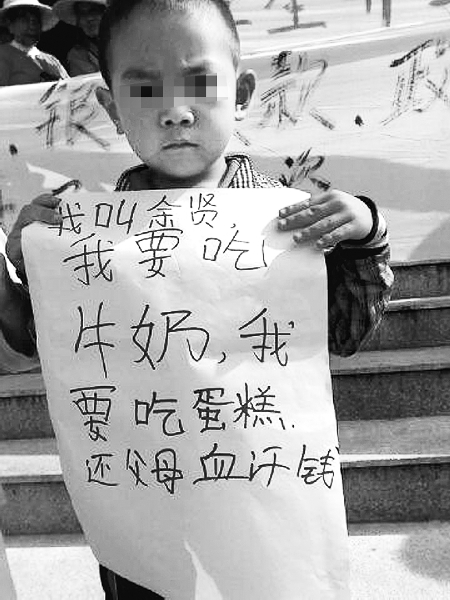 款 政
我叫余贤,
我要吃
牛奶,我
要吃蛋糕.
还父母血汗钱